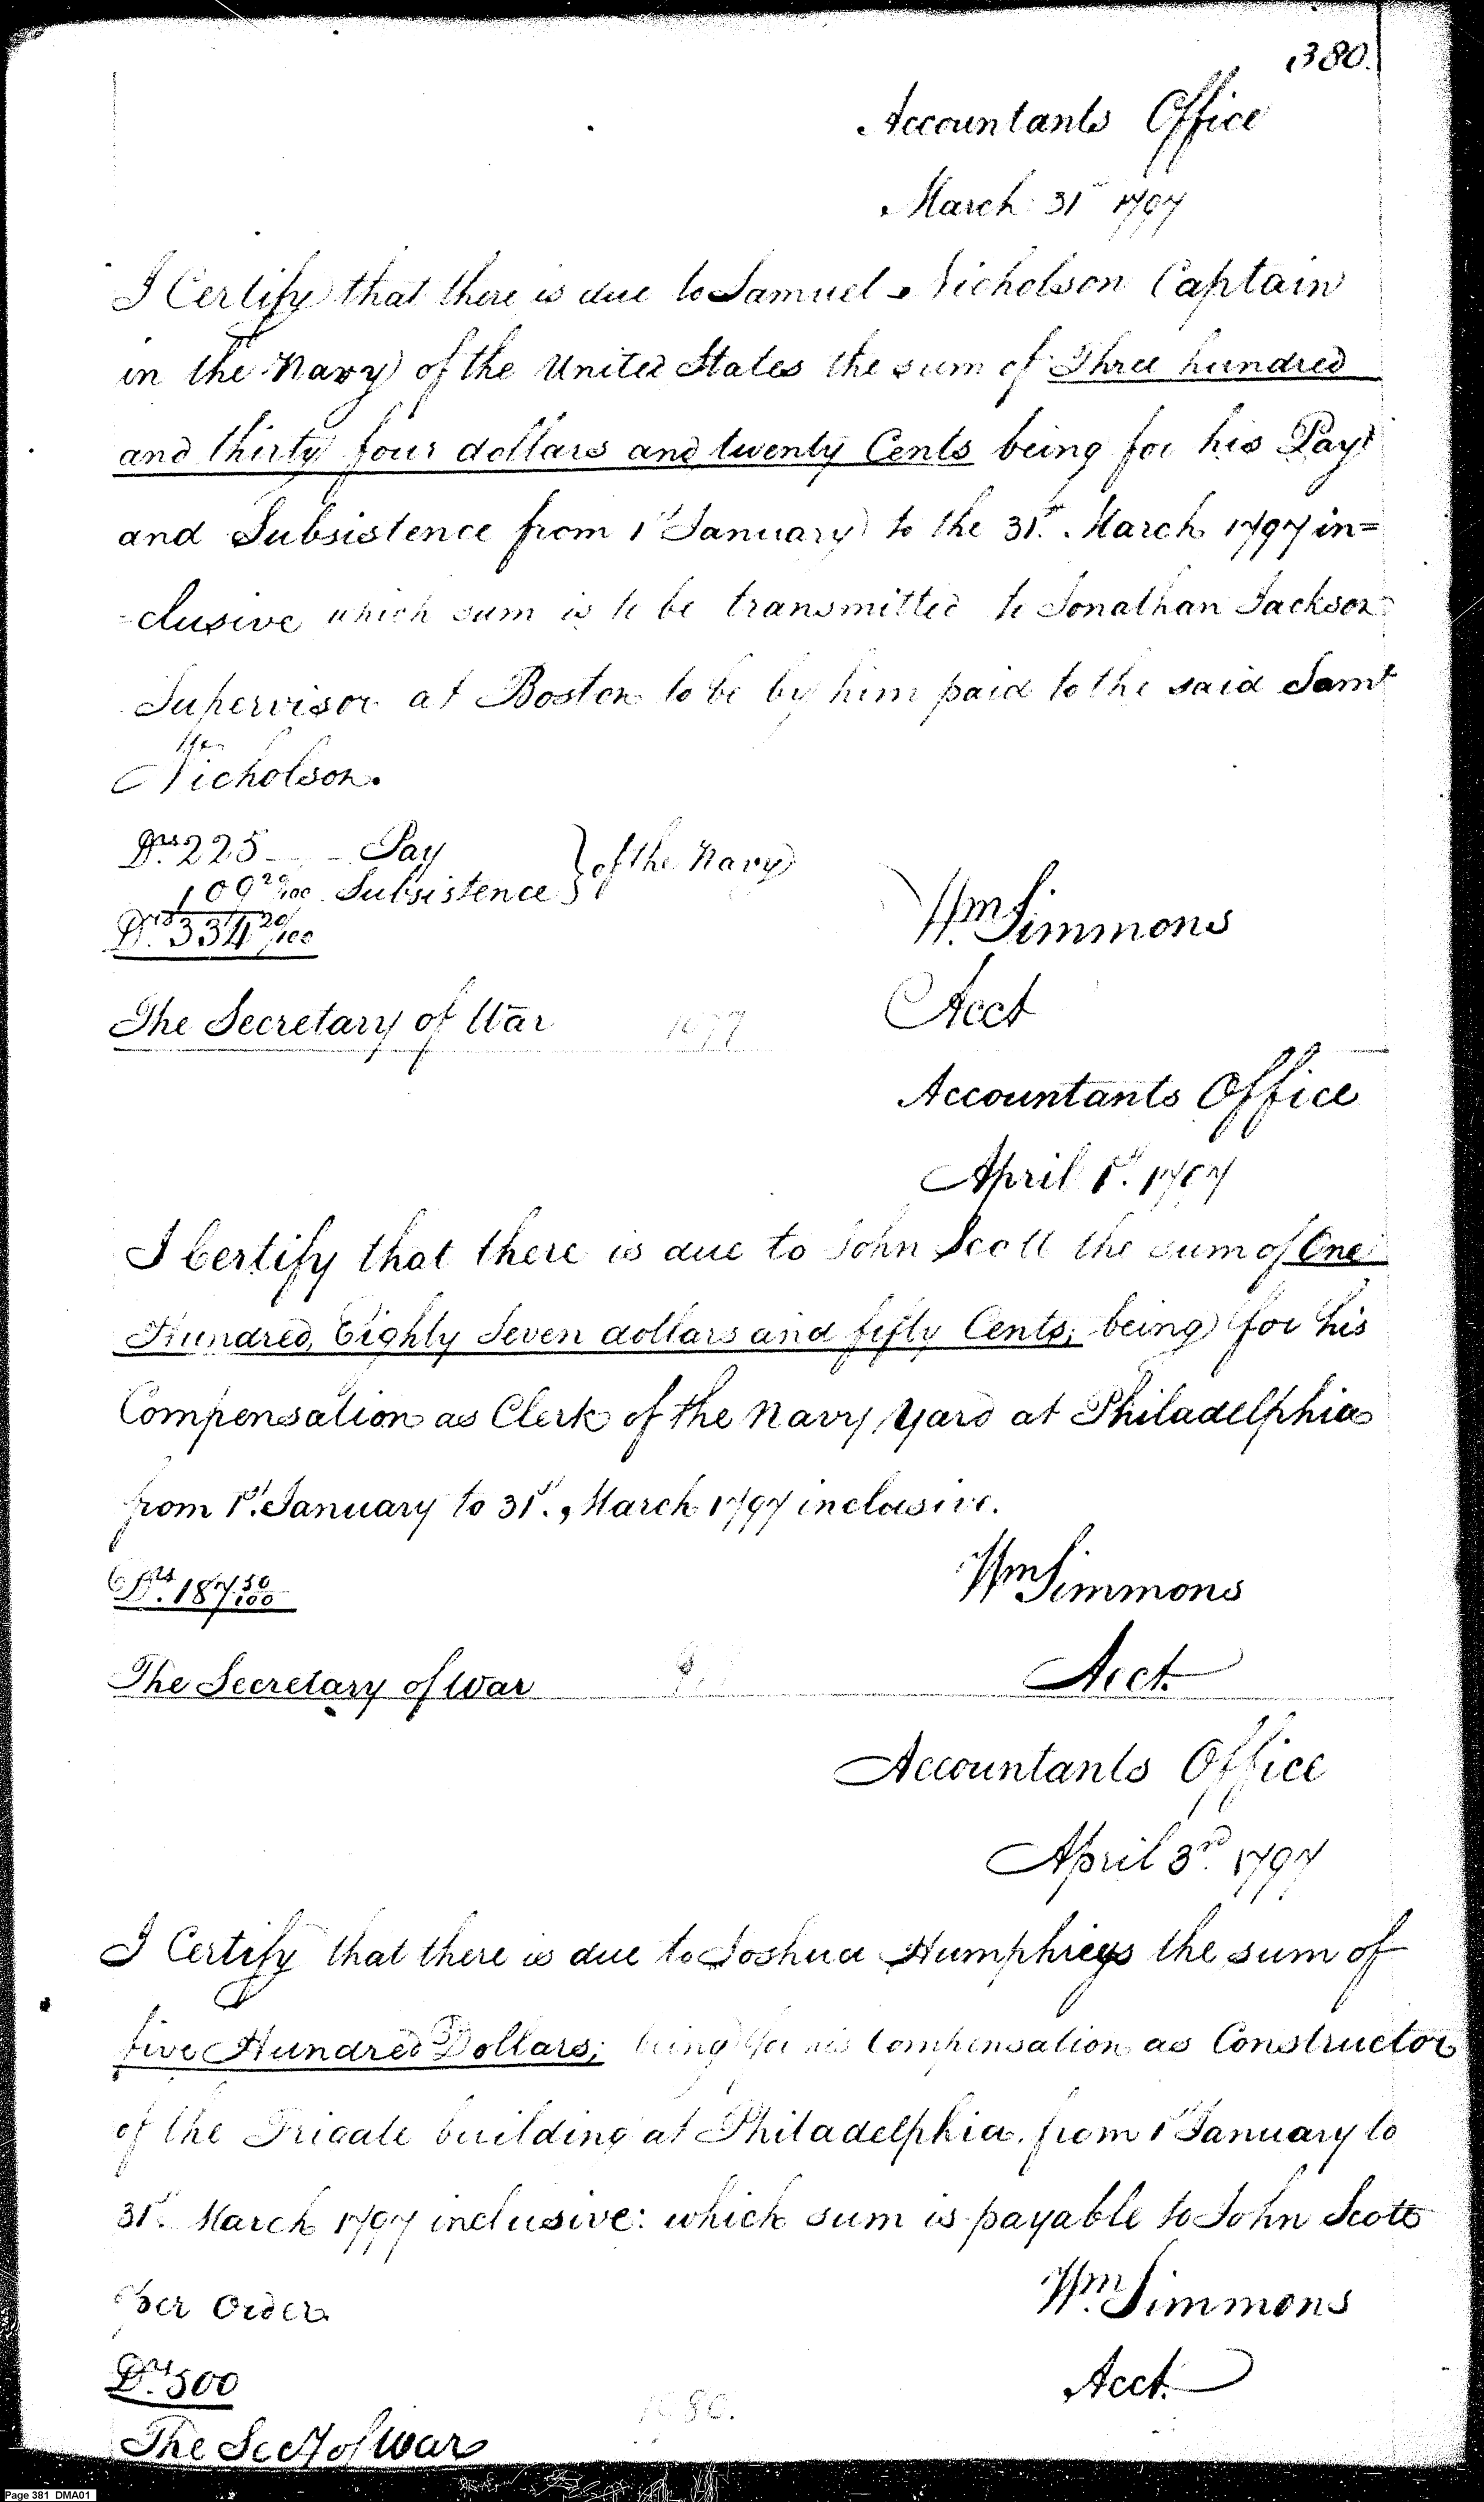 380.
Accountants Office
March 31st 1797
I Certify that there is due to Samuel Nicholson Captain
in the Navy of the United States the sum of Three hundred
and thirty four dollars and twenty Cents being for his Pay
and Subsistence from 1st January to the 31st. March 1797 in=
=clusive which sum is to be transmitted to Jonathan Jackson
Supervisor at Boston to be by him paid to the said Saml
Nicholson.
Drs. 225 — — Pay } of the Navy
109 20/100 Subsistence
Drs. 334 20/100
Wm. Simmons
The Secretary of War 1077 Acct
Accountants Office
April 1st. 1797
I Certify that there is due to John Scott the sum of One
Hundred, Eighty Seven dollars and fifty Cents; being for his
Compensation as Clerk of the Navy Yard at Philadelphia
from 1st. January to 31st. March 1797 inclusive.
Drs. 187 50/100 Wm Simmons
The Secretary of War Acct.
Accountants Office
April 3rd. 1797
I Certify that there is due to Joshua Humphreys the sum of
five Hundred Dollars; being for his Compensation as Constructor
of the Frigate building at Philadelphia. from 1st January to
31st. March 1797 inclusive: which sum is payable to John Scott
per Order. Wm. Simmons
Drs. 500 Acct.
1080.
The Secy of War
Page 381 DMA01